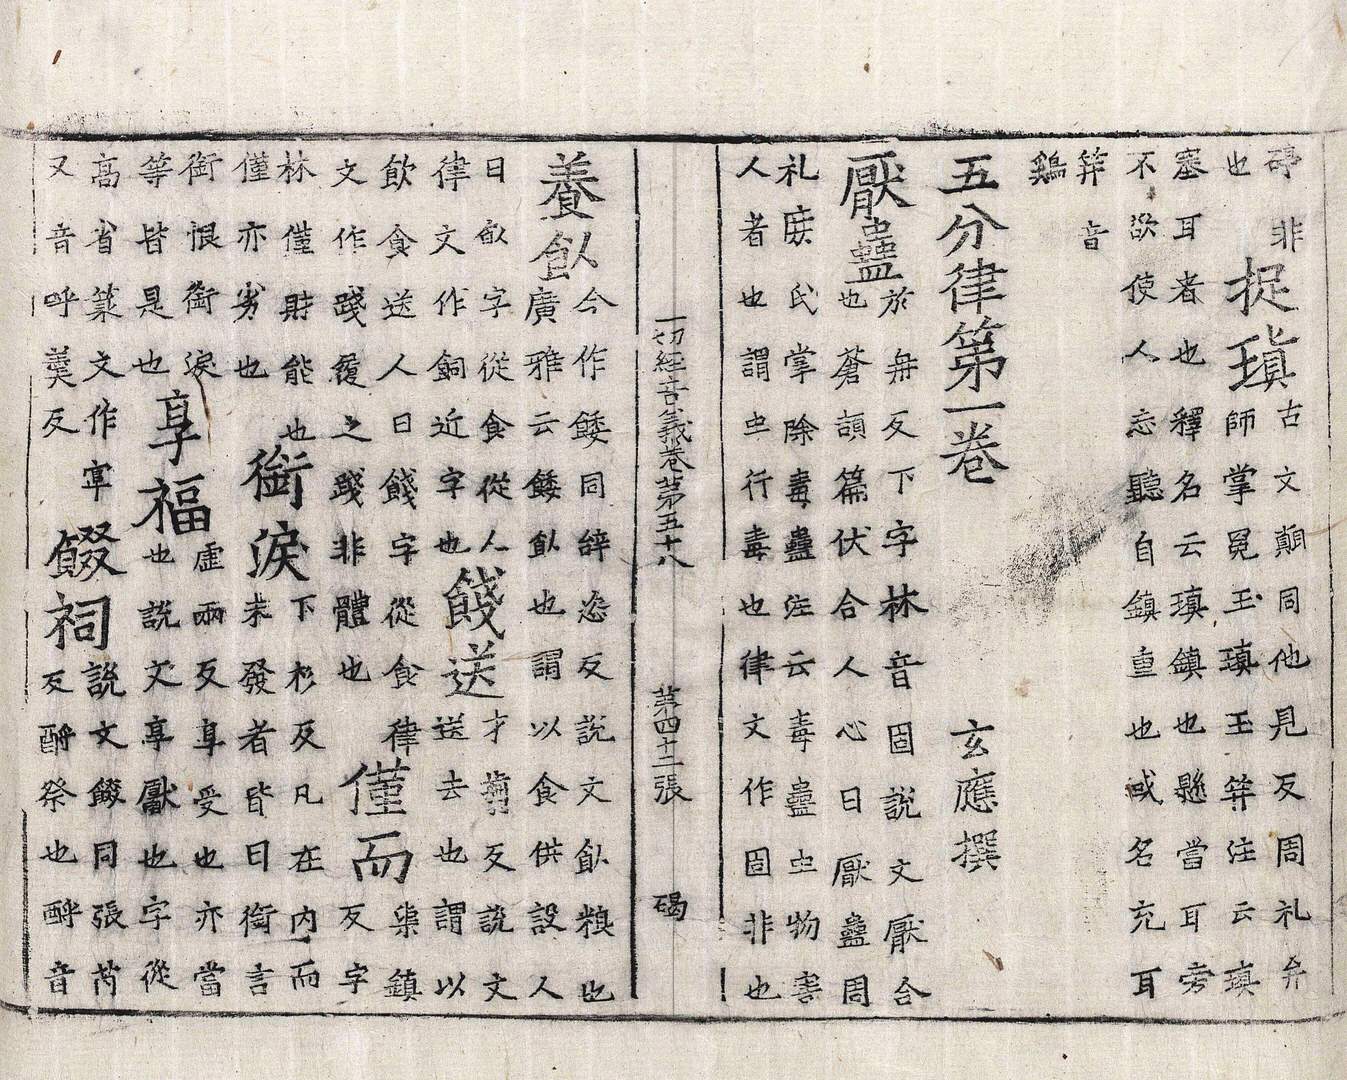 碍非
也
捉瑱
古文顛同他見反周礼弁
師掌冕玉瑱玉筓注云瑱
塞耳者也釋名云瑱鎮也懸當耳旁
不欲使人忘聽自鎮重也或名充耳
筓音
鷄
五分律第一卷 玄應撰
厭蠱
於冉反下字林音固說文厭合
也蒼頡篇伏合人心曰厭蠱周
礼庶氏掌除毒蠱注云毒蠱虫物害
人者也謂虫行毒也律文作固非也
一切經音義卷第五十八 第四十二張 碣
養飤
今作餧同辞恣反說文飤粮也
廣雅云餧飤也謂以食供設人
曰飤字從食從人
律文作飼近字也
餞送
才翦反說文
送去也謂以
飲食送人曰餞字從食律
文作踐履之踐非體也
僅而
渠鎮
反字
林僅財能也
僅亦劣也
銜淚
下衫反凡在内而
未發者皆曰銜言
銜恨銜淚
等皆是也
享福
虛兩反享受也亦當
也說文享獻也字從
高省篆文作亯
又音呼羹反
餟祠
說文餟同張芮
反酹祭也酹音